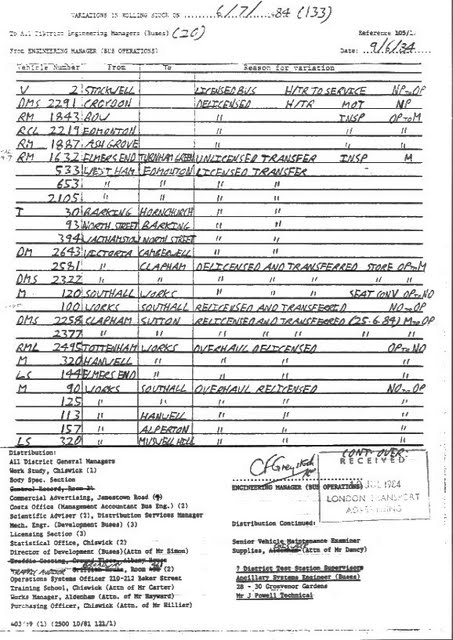 VARIATIONS IN ROLLING STOCK ON 6/7/84 (133)
To All District Engineering Managers (Buses) (20) Reference 105/1.
From ENGINEERING MANAGER (BUS OPERATIONS) Date: 9/6/34
Vehicle Number From To Reason for variation
V 2 STOCKWELL LICENSED BUS H/TR TO SERVICE NP to OP
DMS 2291 CROYDON DELICENSED H/TR MOT NP
RM 1843 BOW " INSP OP to M
RCL 2219 EDMONTON " " "
RM 1887 ASH GROVE " " "
RM 1632 ELMERS END TURNHAM GREEN UNLICENSED TRANSFER INSP M
533 WEST HAM EDMONTON LICENSED TRANSFER
653 " " " "
2105 " " " "
T 30 BARKING HORNCHURCH " "
93 NORTH STREET BARKING " "
394 WALTHAMSTOW NORTH STREET " "
DM 2643 VICTORIA CAMBERWELL " "
2581 " CLAPHAM DELICENSED AND TRANSFERRED STORE OP to M
DMS 2322 " " " " " " "
M 120 SOUTHALL WORKS " " " SEAT CONV OP to NO
100 WORKS SOUTHALL RELICENSED AND TRANSFERRED NO to OP
DMS 2258 CLAPHAM SUTTON RELICENSED AND TRANSFERRED (25.6.84) M to OP
2377 " " " " " " "
RML 2495 TOTTENHAM WORKS OVERHAUL DELICENSED OP to NO
M 320 HANWELL " " " "
LS 144 ELMERS END " " " "
M 90 WORKS SOUTHALL OVERHAUL RELICENSED NO to OP
125 " " " " "
113 " HANWELL " " "
157 " ALPERTON " " "
LS 320 " MUSWELL HILL " " "
CONT OVER:
Distribution:
All District General Managers
Work Study, Chiswick (1)
Body Spec. Section
Control Record, Room 34
Commercial Advertising, Jamestown Road
Costs Office (Management Accountant Bus Eng.) (2)
Scientific Adviser (2), Distribution Services Manager
Mech. Engr. (Development Buses) (3)
Licensing Section (3)
Statistical Office, Chiswick (2)
Director of Development (Buses)(Attn of Mr Simon)
Room (2)
Operations Systems Officer 210-212 Baker Street
Training School, Chiswick (Attn of Mr Carter)
Works Manager, Aldenham (Attn. of Mr Hayward)
Purchasing Officer, Chiswick (Attn of Mr Hillier)
403/79 (1) (2500 10/81 121/1)
ENGINEERING MANAGER (BUS OPERATIONS)
RECEIVED
JUL 1984
LONDON TRANSPORT
ADVERTISING
Distribution Continued:
Senior Vehicle Maintenance Examiner
Supplies, Aldenham (Attn of Mr Dancy)
7 District Test Station Supervisors
Ancillary Systems Engineer (Buses)
28 - 30 Grosvenor Gardens
Mr J Powell Technical